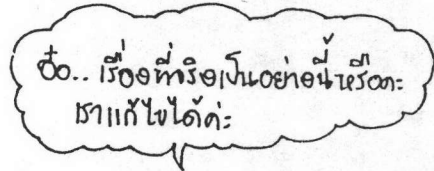 อ๋อ.. เรื่องที่จริงเป็นอย่างนี้หรือคะ
เราแก้ไขได้ค่ะ